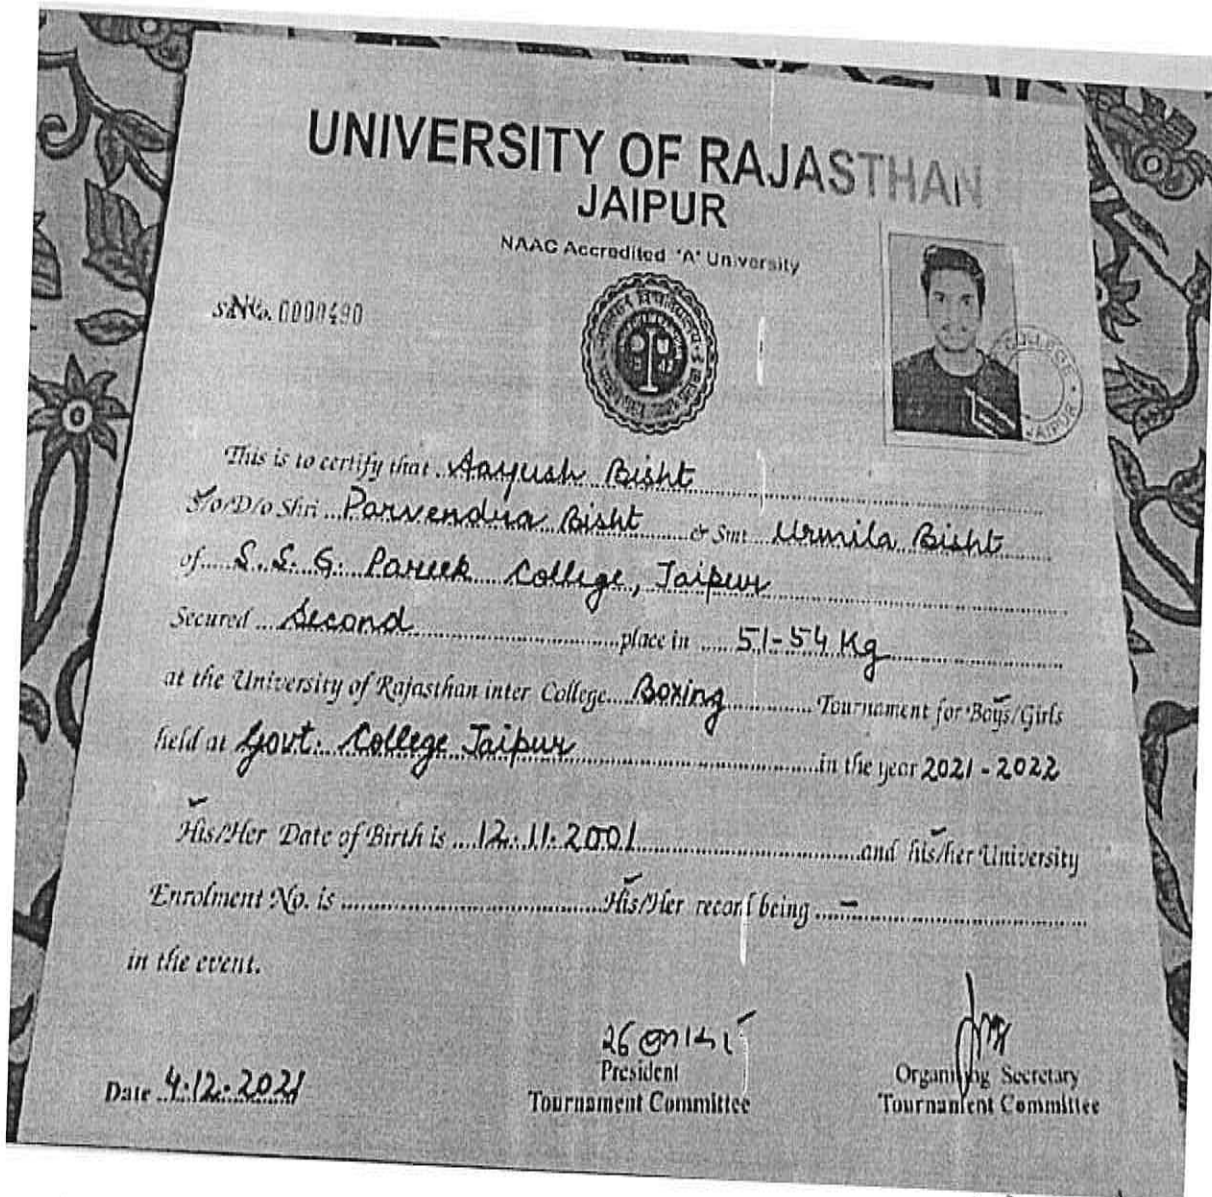 UNIVERSITY OF RAJASTHAN
JAIPUR
NAAC Accredited 'A' University
S.No. 0000490
COLLEGE
JAIPUR
This is to certify that Aayush Bisht
S/o/D/o Shri Parvendra Bisht & Smt Urmila Bisht
of S.S.G. Pareek College, Jaipur
Secured Second place in 51-54 Kg
at the University of Rajasthan inter College Boxing Tournament for Boys/Girls
held at Govt. College Jaipur in the year 2021-2022
His/Her Date of Birth is 12.11.2001 and his/her University
Enrolment No. is His/Her record being -
in the event.
Date 4.12.2021
President
Tournament Committee
Organising Secretary
Tournament Committee